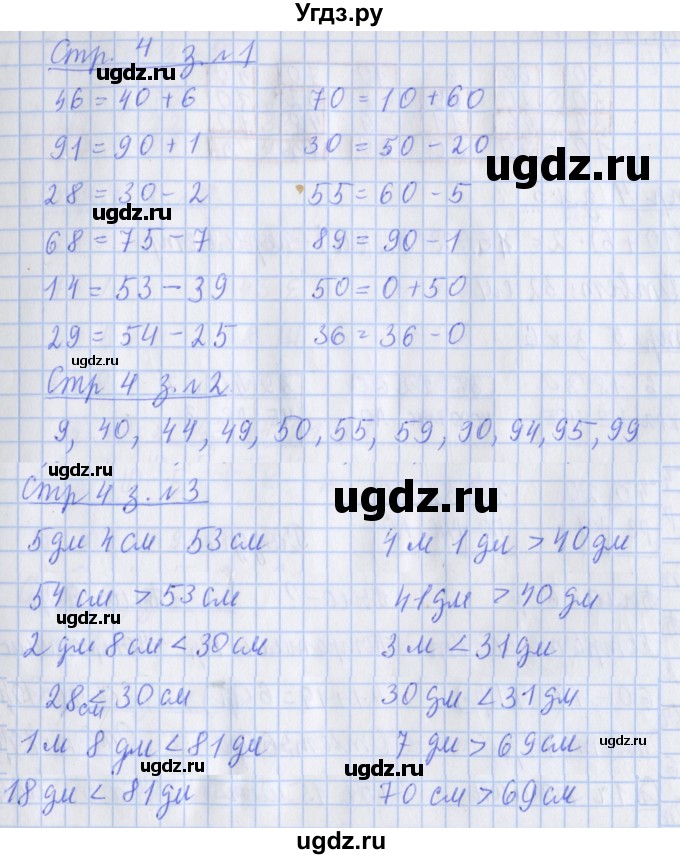 Угдз.ру
Стр. 4 з. №1
46 = 40 + 6
70 = 10 + 60
91 = 90 + 1
30 = 50 - 20
28 = 30 - 2
55 = 60 - 5
68 = 75 - 7
89 = 90 - 1
14 = 53 - 39
50 = 0 + 50
29 = 54 - 25
36 = 36 - 0
Стр 4 з. №2
9, 40, 44, 49, 50, 55, 59, 90, 94, 95, 99
Стр 4 з. №3
5 дм 4 см 53 см
4 м 1 дм > 40 дм
54 см > 53 см
41 дм > 40 дм
2 дм 8 см < 30 см
3 м < 31 дм
28 см < 30 см
30 дм < 31 дм
1 м 8 дм < 81 дм
7 дм > 69 см
18 дм < 81 дм
70 см > 69 см
ugdz.ru
ugdz.ru
ugdz.ru
ugdz.ru
ugdz.ru
ugdz.ru
ugdz.ru
ugdz.ru
ugdz.ru
ugdz.ru
ugdz.ru
ugdz.ru